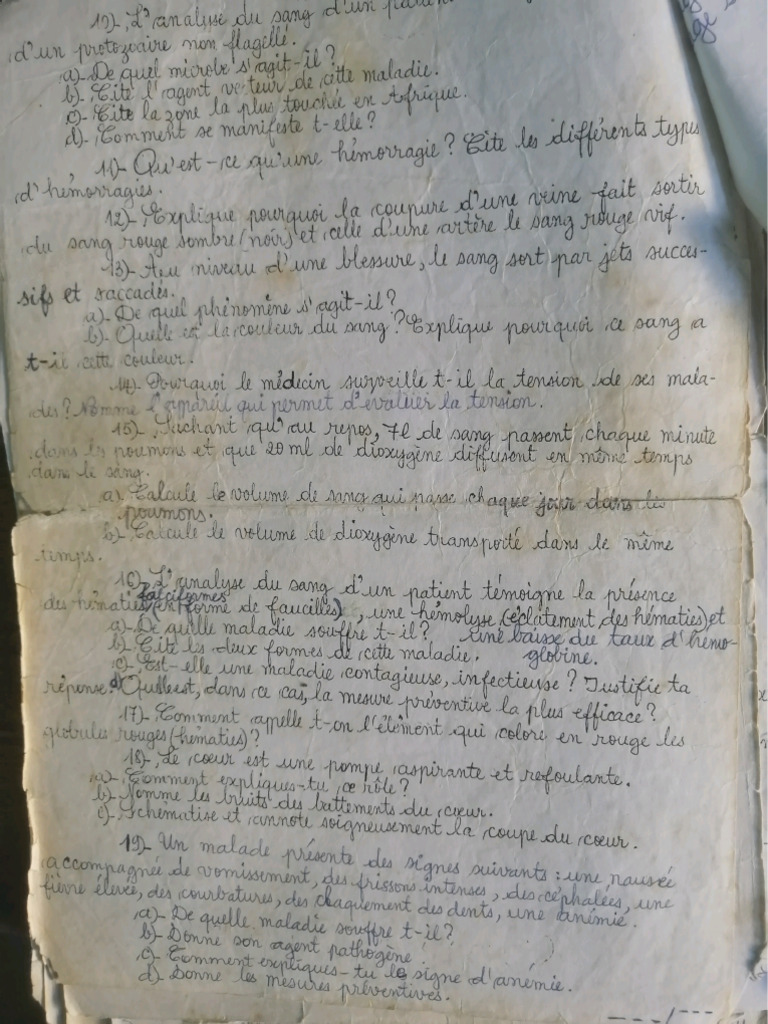 10)- L'analyse du sang d'un
d'un protozoaire non flagellé.
a)- De quel microbe s'agit-il?
b)- Cite l'agent vecteur de cette maladie.
c)- Cite la zone la plus touchée en Afrique.
d)- Comment se manifeste t-elle?
11)- Qu'est-ce qu'une hémorragie? Cite les différents types
d'hémorragies.
12)- Explique pourquoi la coupure d'une veine fait sortir
du sang rouge sombre (noir) et celle d'une artère le sang rouge vif.
13)- Au niveau d'une blessure, le sang sort par jets succes-
sifs et saccadés.
a)- De quel phénomène s'agit-il?
b)- Quelle est la couleur du sang? Explique pourquoi ce sang a
t-il cette couleur.
14)- Pourquoi le médecin surveille t-il la tension de ses mala-
des? Nomme l'appareil qui permet d'évaluer la tension.
15)- Sachant qu'au repos, 7l de sang passent chaque minute
dans les poumons et que 20 ml de dioxygène diffusent en même temps
dans le sang.
a)- Calcule le volume de sang qui passe chaque jour dans les
poumons.
b)- Calcule le volume de dioxygène transporté dans le même
temps.
16)- L'analyse du sang d'un patient témoigne la présence
des hématies falciformes (en forme de faucilles), une hémolyse (éclatement des hématies) et
une baisse du taux d'hémo-
globine.
a)- De quelle maladie souffre t-il?
b)- Cite les deux formes de cette maladie.
c)- Est-elle une maladie contagieuse, infectieuse? Justifie ta
réponse. d) Quelle est, dans ce cas, la mesure préventive la plus efficace?
17)- Comment appelle t-on l'élément qui colore en rouge les
globules rouges (hématies)?
18)- Le cœur est une pompe aspirante et refoulante.
a)- Comment expliques-tu ce rôle?
b)- Nomme les bruits des battements du cœur.
c)- Schématise et annote soigneusement la coupe du cœur.
19)- Un malade présente des signes suivants: une nausée
accompagnée de vomissement, des frissons intenses, des céphalées, une
fièvre élevée, des courbatures, des claquement des dents, une anémie.
a)- De quelle maladie souffre t-il?
b)- Donne son agent pathogène.
c)- Comment expliques-tu le signe d'anémie.
d)- Donne les mesures préventives.